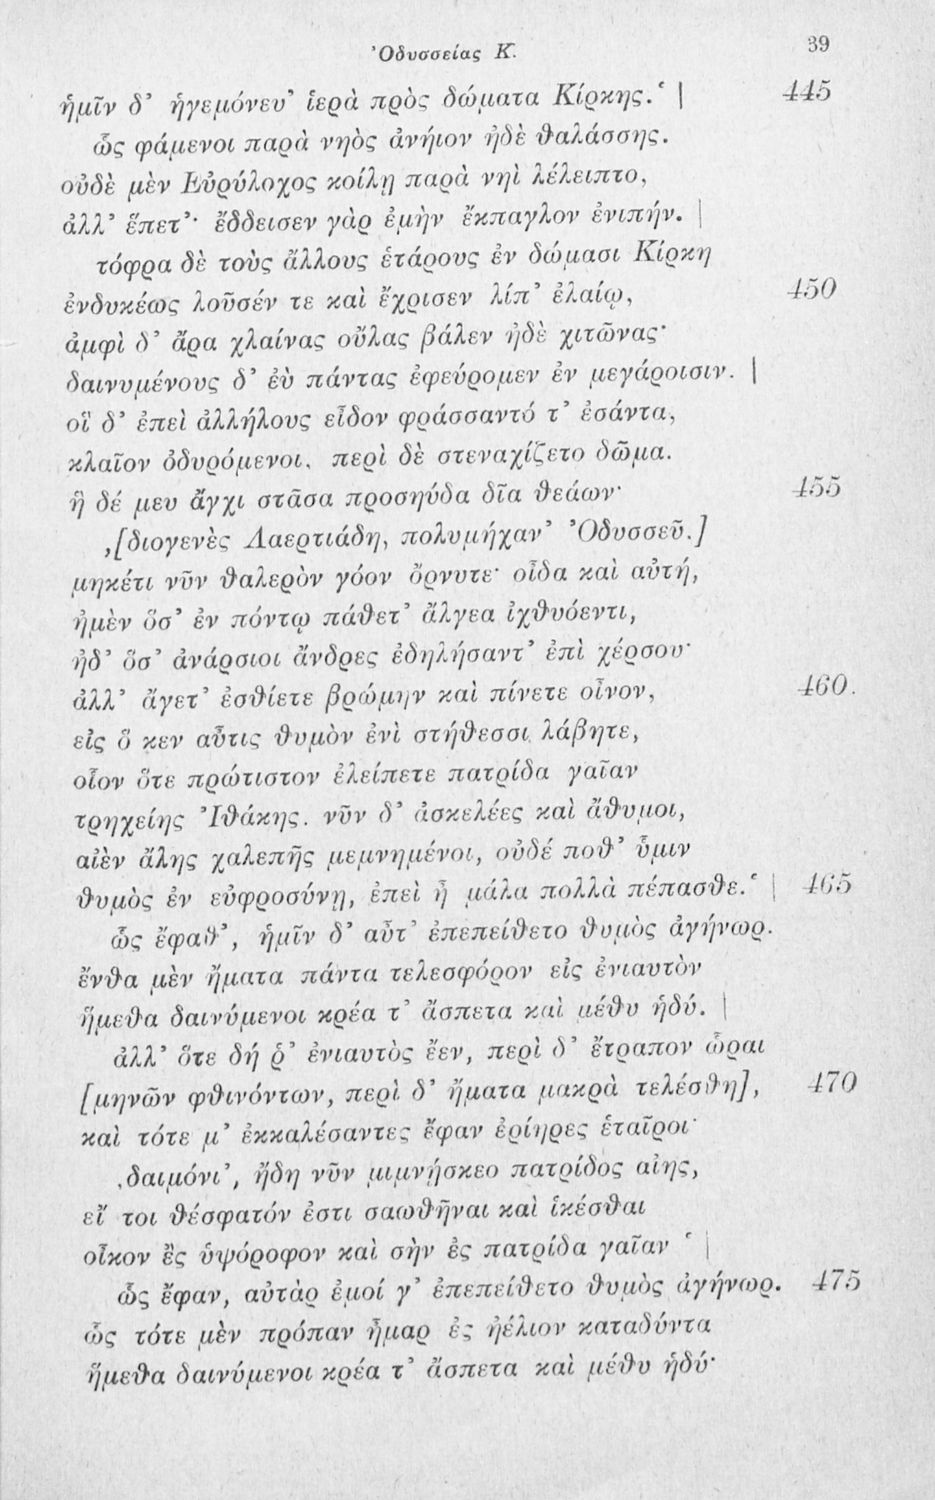 Ὀδυσσείας Κ.
39
ἡμῖν δ’ ἡγεμόνευ’ ἱερὰ πρὸς δώματα Κίρκης.‘ | 445
ὣς φάμενοι παρὰ νηὸς ἀνήιον ἠδὲ θαλάσσης.
οὐδὲ μὲν Εὐρύλοχος κοίλῃ παρὰ νηὶ λέλειπτο,
ἀλλ’ ἕπετ’· ἔδδεισεν γὰρ ἐμὴν ἔκπαγλον ἐνιπήν. |
τόφρα δὲ τοὺς ἄλλους ἑτάρους ἐν δώμασι Κίρκη
ἐνδυκέως λοῦσέν τε καὶ ἔχρισεν λίπ’ ἐλαίῳ, 450
ἀμφὶ δ’ ἄρα χλαίνας οὔλας βάλεν ἠδὲ χιτῶνας·
δαινυμένους δ’ ἐὺ πάντας ἐφεύρομεν ἐν μεγάροισιν. |
οἳ δ’ ἐπεὶ ἀλλήλους εἶδον φράσσαντό τ’ ἐσάντα,
κλαῖον ὀδυρόμενοι, περὶ δὲ στεναχίζετο δῶμα.
ἣ δέ μευ ἄγχι στᾶσα προσηύδα δῖα θεάων· 455
‚[διογενὲς Λαερτιάδη, πολυμήχαν’ Ὀδυσσεῦ.]
μηκέτι νῦν θαλερὸν γόον ὄρνυτε· οἶδα καὶ αὐτή,
ἠμὲν ὅσ’ ἐν πόντῳ πάθετ’ ἄλγεα ἰχθυόεντι,
ἠδ’ ὅσ’ ἀνάρσιοι ἄνδρες ἐδηλήσαντ’ ἐπὶ χέρσου·
ἀλλ’ ἄγετ’ ἐσθίετε βρώμην καὶ πίνετε οἶνον, 460.
εἰς ὅ κεν αὖτις θυμὸν ἐνὶ στήθεσσι λάβητε,
οἷον ὅτε πρώτιστον ἐλείπετε πατρίδα γαῖαν
τρηχείης Ἰθάκης. νῦν δ’ ἀσκελέες καὶ ἄθυμοι,
αἰὲν ἄλης χαλεπῆς μεμνημένοι, οὐδέ ποθ’ ὗμιν
θυμὸς ἐν εὐφροσύνῃ, ἐπεὶ ἦ μάλα πολλὰ πέπασθε.‘ | 465
ὣς ἔφαθ’, ἡμῖν δ’ αὖτ’ ἐπεπείθετο θυμὸς ἀγήνωρ.
ἔνθα μὲν ἤματα πάντα τελεσφόρον εἰς ἐνιαυτὸν
ἥμεθα δαινύμενοι κρέα τ’ ἄσπετα καὶ μέθυ ἡδύ. |
ἀλλ’ ὅτε δή ῥ’ ἐνιαυτὸς ἔεν, περὶ δ’ ἔτραπον ὧραι
[μηνῶν φθινόντων, περὶ δ’ ἤματα μακρὰ τελέσθη], 470
καὶ τότε μ’ ἐκκαλέσαντες ἔφαν ἐρίηρες ἑταῖροι·
‚δαιμόνι’, ἤδη νῦν μιμνήσκεο πατρίδος αἴης,
εἴ τοι θέσφατόν ἐστι σαωθῆναι καὶ ἱκέσθαι
οἶκον ἒς ὑψόροφον καὶ σὴν ἐς πατρίδα γαῖαν ‘ |
ὣς ἔφαν, αὐτὰρ ἐμοί γ’ ἐπεπείθετο θυμὸς ἀγήνωρ. 475
ὣς τότε μὲν πρόπαν ἦμαρ ἐς ἠέλιον καταδύντα
ἥμεθα δαινύμενοι κρέα τ’ ἄσπετα καὶ μέθυ ἡδύ·